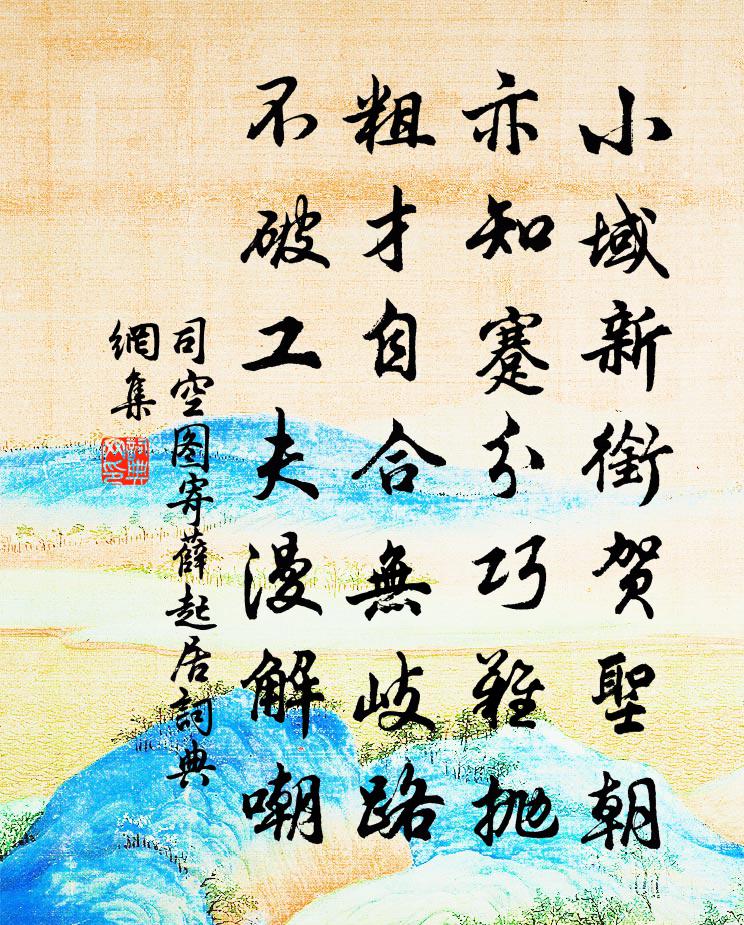 小域新銜贺聖朝
亦知蹇分巧難抛
粗才自合無岐路
不破工夫漫解嘲
司空图寄薛起居詞典
網集